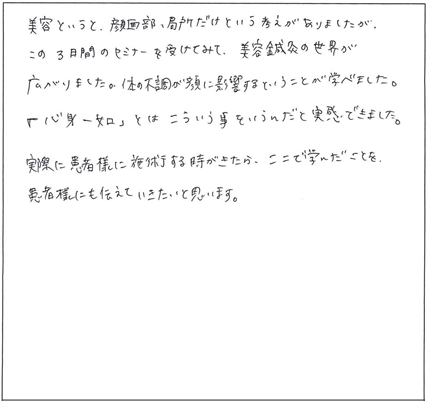 美容というと、顔面部、局所だけという考えがありましたが、
この3日間のセミナーを受けてみて、美容鍼灸の世界が
広がりました。体の不調が顔に影響するということが学べました。
「心身一如」とはこういう事をいうんだと実感できました。
実際に患者様に施術する時がきたら、ここで学んだことを、
患者様にも伝えていきたいと思います。